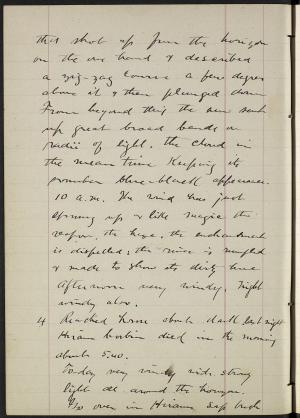 that shot up from the horizon
on the one hand & described
a zig-zag course a few degrees
above it & then plunged down
From beyond this the sun sent
up great broad bands or
radii of light, the cloud in
the mean time keeping its
sombre blue-black appearance.
10 a.m. The wind has just
sprung up & like magic the
vapor, the haze, the enchantment
is dispelled; the river is ruffled
& made to show its dirty hue
Afternoon very windy. Night
windy also.
4 Reached home about dark last night
Hiram died in the morning
about 5.40.
Today very windy still. strong
light all around the horizon.
over in Hirams sap bush